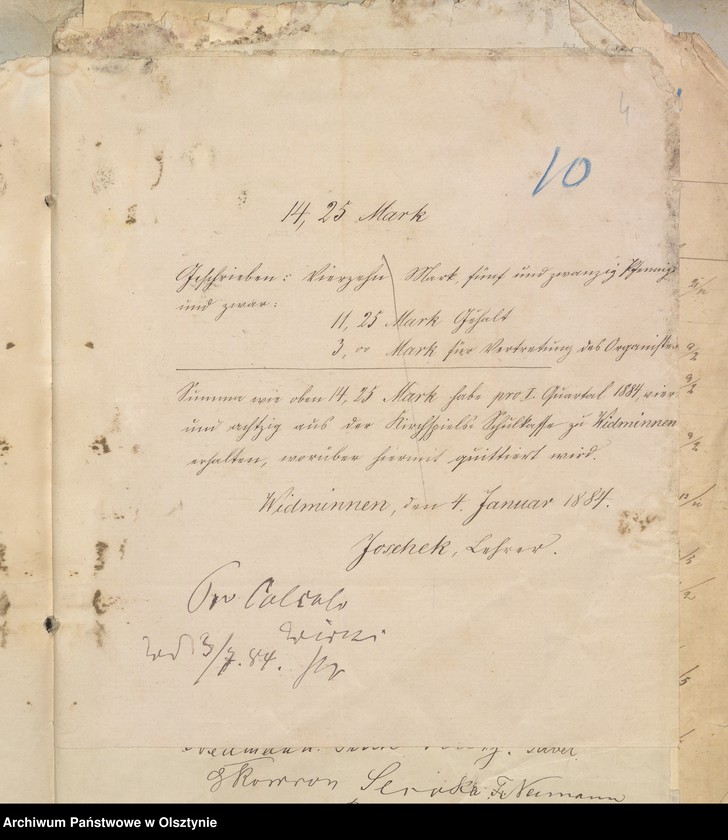 4
10
14, 25 Mark
Geschrieben: Vierzehn Mark, fünf und zwanzig Pfennig
und zwar:
11, 25 Mark Gehalt
3, 00 Mark für Vertretung des Organisten
Summa wie oben 14, 25 Mark habe pro I. Quartal 1884, vier
und achtzig aus der Kirchspiels Schulkasse zu Widminnen
erhalten, worüber hiermit quittiert wird.
Widminnen, den 4. Januar 1884.
Joschek, Lehrer.
Pro Calculo
3/7. 84.
Skowron Seroka Fr Neumann
Archiwum Państwowe w Olsztynie